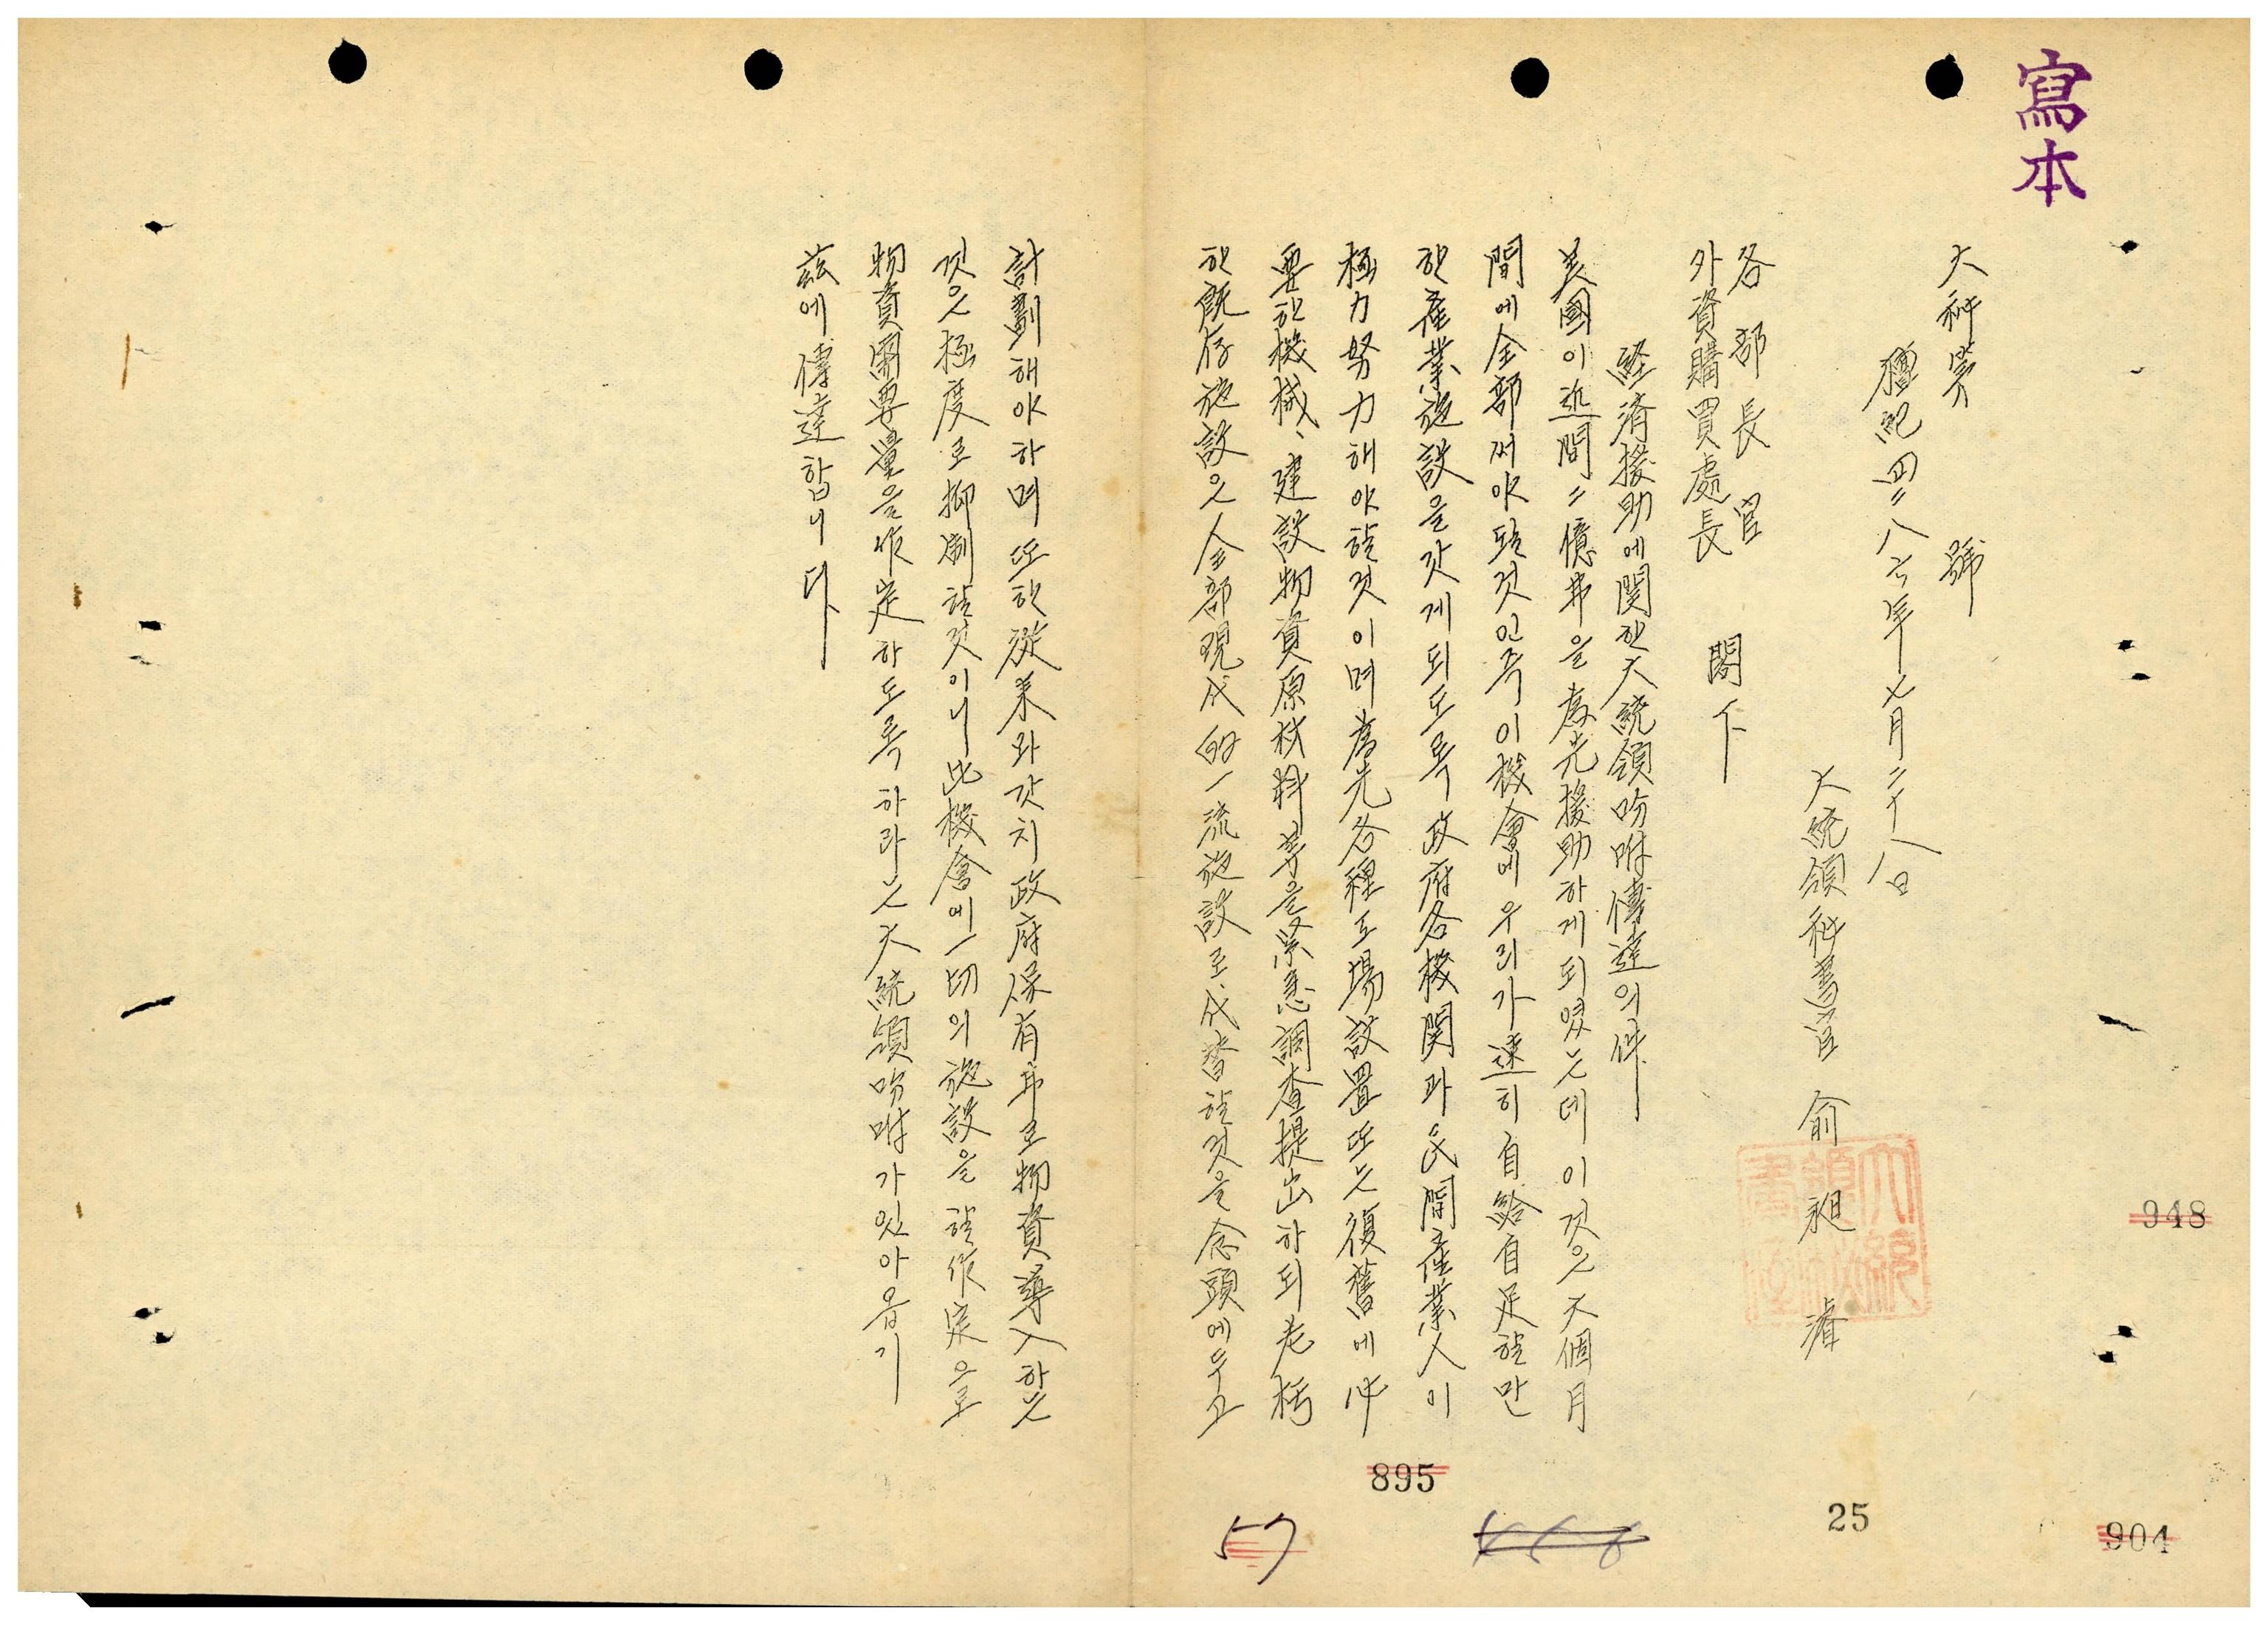 寫本
大秘第 號
檀紀四二八六年七月二十八日
大統領秘書官 俞昶濬
各部長官
外資購買處長 閣下
経済援助에関한大統領吩咐傳達의件
美國이近間二億弗을為先援助하게되였는데이것은六個月
間에全部써야될것인즉이機會에우리가速히自給自足할만
한産業施設을갖게되도록政府各機関과民間産業人이
極力努力해야할것이며為先各種工場設置또는復舊에必
要한機械、建設物資原材料等을緊急調査提出하되老朽
한既存施設은全部現代的一流施設로代替할것을念頭에두고
計劃해야하며또한從来와갓치政府保有弗로物資導入하는
것은極度로抑制할것이니此機會에一切의施設을할作定으로
物資需要量을作定하도록하라는大統領吩咐가있아옵기
玆에傳達합니다
948
895
25
904
57